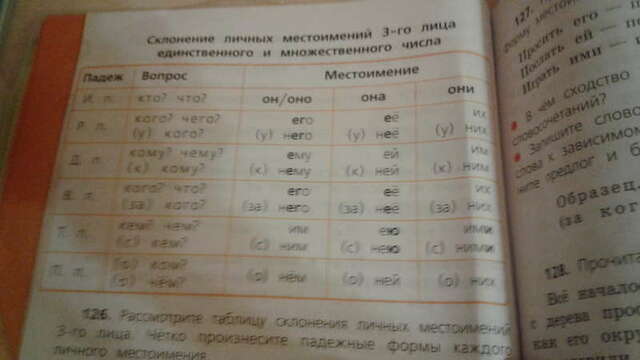 Склонение личных местоимений 3-го лица
единственного и множественного числа
Падеж Вопрос Местоимение
И. п. кто? что? он/оно она они
Р. п. кого? чего? его её их
(у) кого? (у) него (у) неё (у) них
Д. п. кому? чему? ему ей им
(к) кому? (к) нему (к) ней (к) ним
В. п. кого? что? его её их
(за) кого? (за) него (за) неё (за) них
Т. п. кем? чем? им ею ими
(с) кем? (с) ним (с) нею (с) ними
П. п. (о) ком? (о) нём (о) ней (о) них
(о) чём?
126. Рассмотрите таблицу склонения личных местоимений
3-го лица. Чётко произнесите падежные формы каждого
личного местоимения.
127.
форму местоим
Просить его — по
Послать ей — по
Играть ими —
В чём сходство
словосочетаний?
Запишите слово
слова к зависимо
ните предлог и б
Образец.
(за ког
128. Прочита
Всё начало
с дерева прос
как его окру